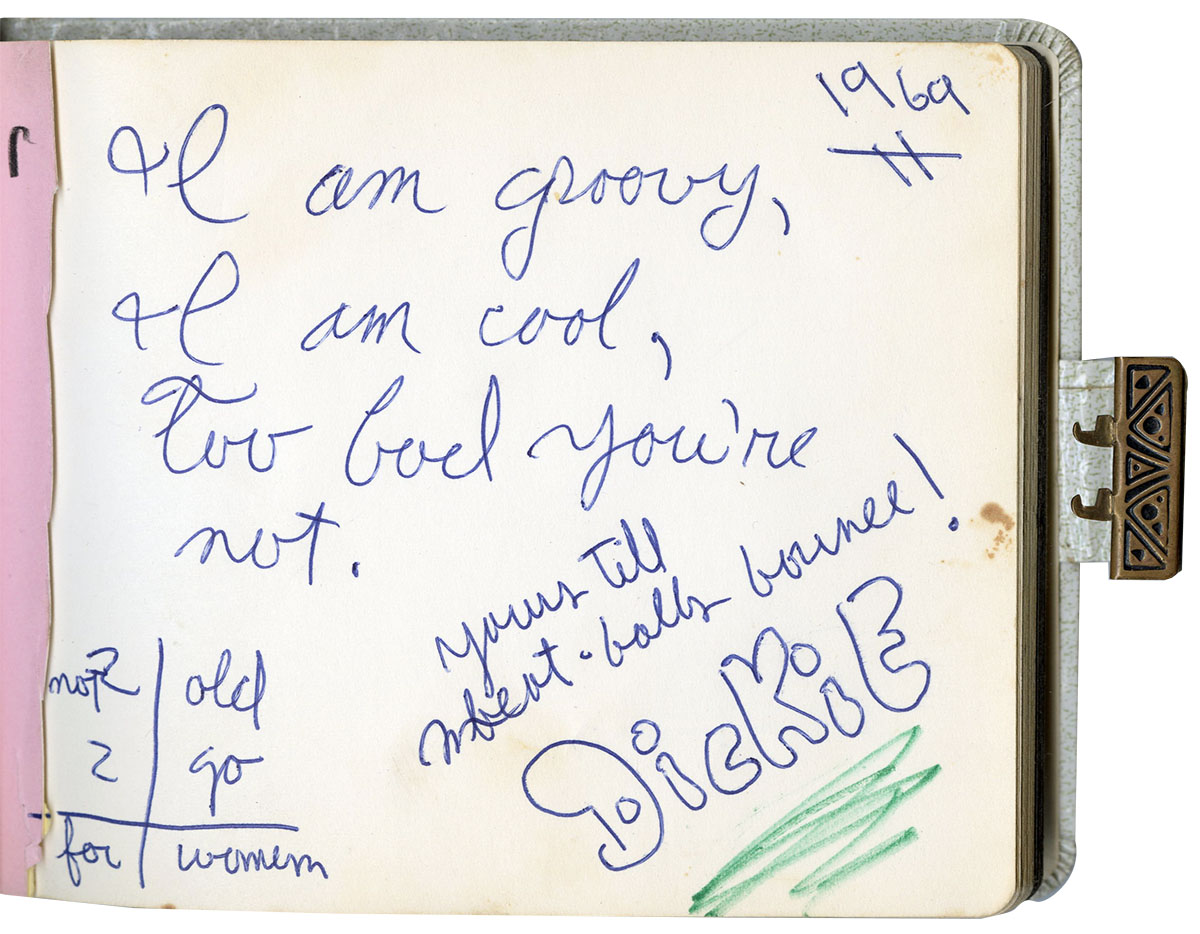 1969
I am groovy,
I am cool,
Too bad you're
not.
yours till
meat-balls bounce!
DICKIE
not 2 old
2 go
for women